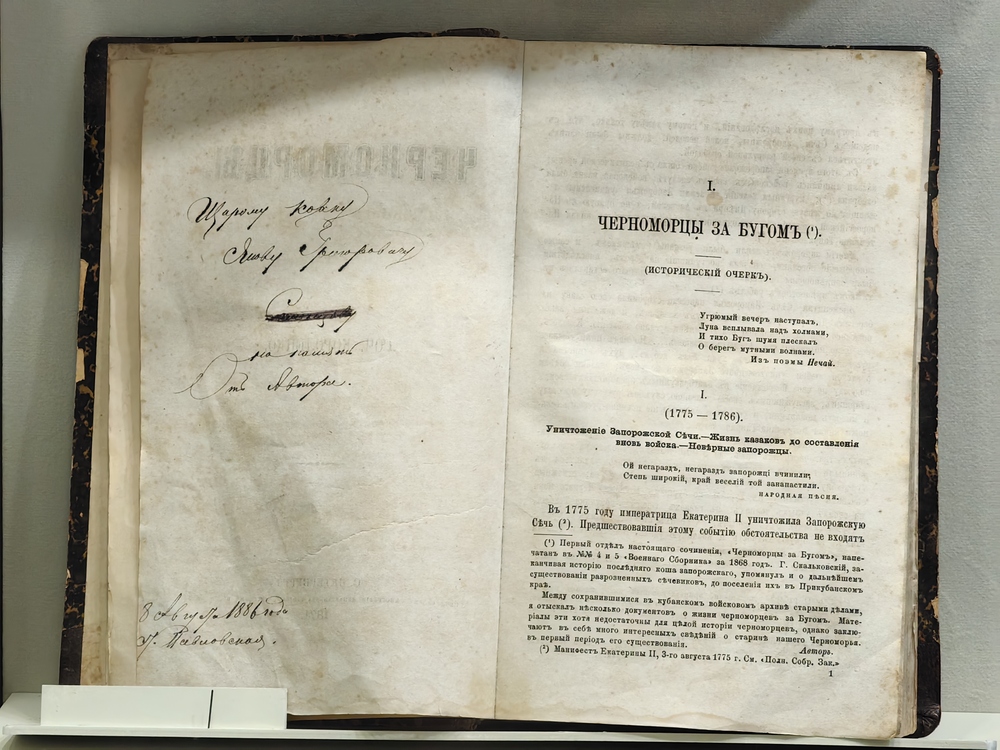 Щарому
Якову Григоровичу
на память
Отъ Автора.
8 Августа 1886 года
ЧЕРНОМОРЦЫ
I.
ЧЕРНОМОРЦЫ ЗА БУГОМЪ (¹).
(ИСТОРИЧЕСКІЙ ОЧЕРКЪ).
Угрюмый вечеръ наступалъ,
Луна всплывала надъ холмами,
И тихо Бугъ шумя плескалъ
О берегъ мутными волнами.
Изъ поэмы Нечай.
I.
(1775 — 1786).
Уничтоженіе Запорожской Сѣчи.—Жизнь казаковъ до составленія
вновь войска.—Невѣрные запорожцы.
Ой негараздъ, негараздъ запорожці вчинили;
Степь широкій, край веселій той занапастили.
НАРОДНАЯ ПѢСНЯ.
Въ 1775 году императрица Екатерина II уничтожила Запорожскую
Сѣчь (²). Предшествовавшія этому событію обстоятельства не входятъ
(¹) Первый отдѣлъ настоящаго сочиненія, «Черноморцы за Бугомъ», напе-
чатанъ въ №№ 4 и 5 «Военнаго Сборника» за 1868 годъ. Г. Скальковскій, за-
канчивая исторію послѣдняго коша запорожскаго, упомянулъ и о дальнѣйшемъ
существованіи разрозненныхъ сѣчевиковъ, до поселенія ихъ въ Прикубанскомъ
краѣ.
Между сохранившимися въ кубанскомъ войсковомъ архивѣ старыми дѣлами,
я отыскалъ нѣсколько документовъ о жизни черноморцевъ за Бугомъ. Мате-
ріалы эти хотя недостаточны для цѣлой исторіи черноморцевъ, однако заклю-
чаютъ въ себѣ много интересныхъ свѣдѣній о старинѣ нашего Черноморья.
въ первый періодъ его существованія.
Авторъ.
(²) Манифестъ Екатерины II, 3-го августа 1775 г. См. «Полн. Собр. Зак.»
1